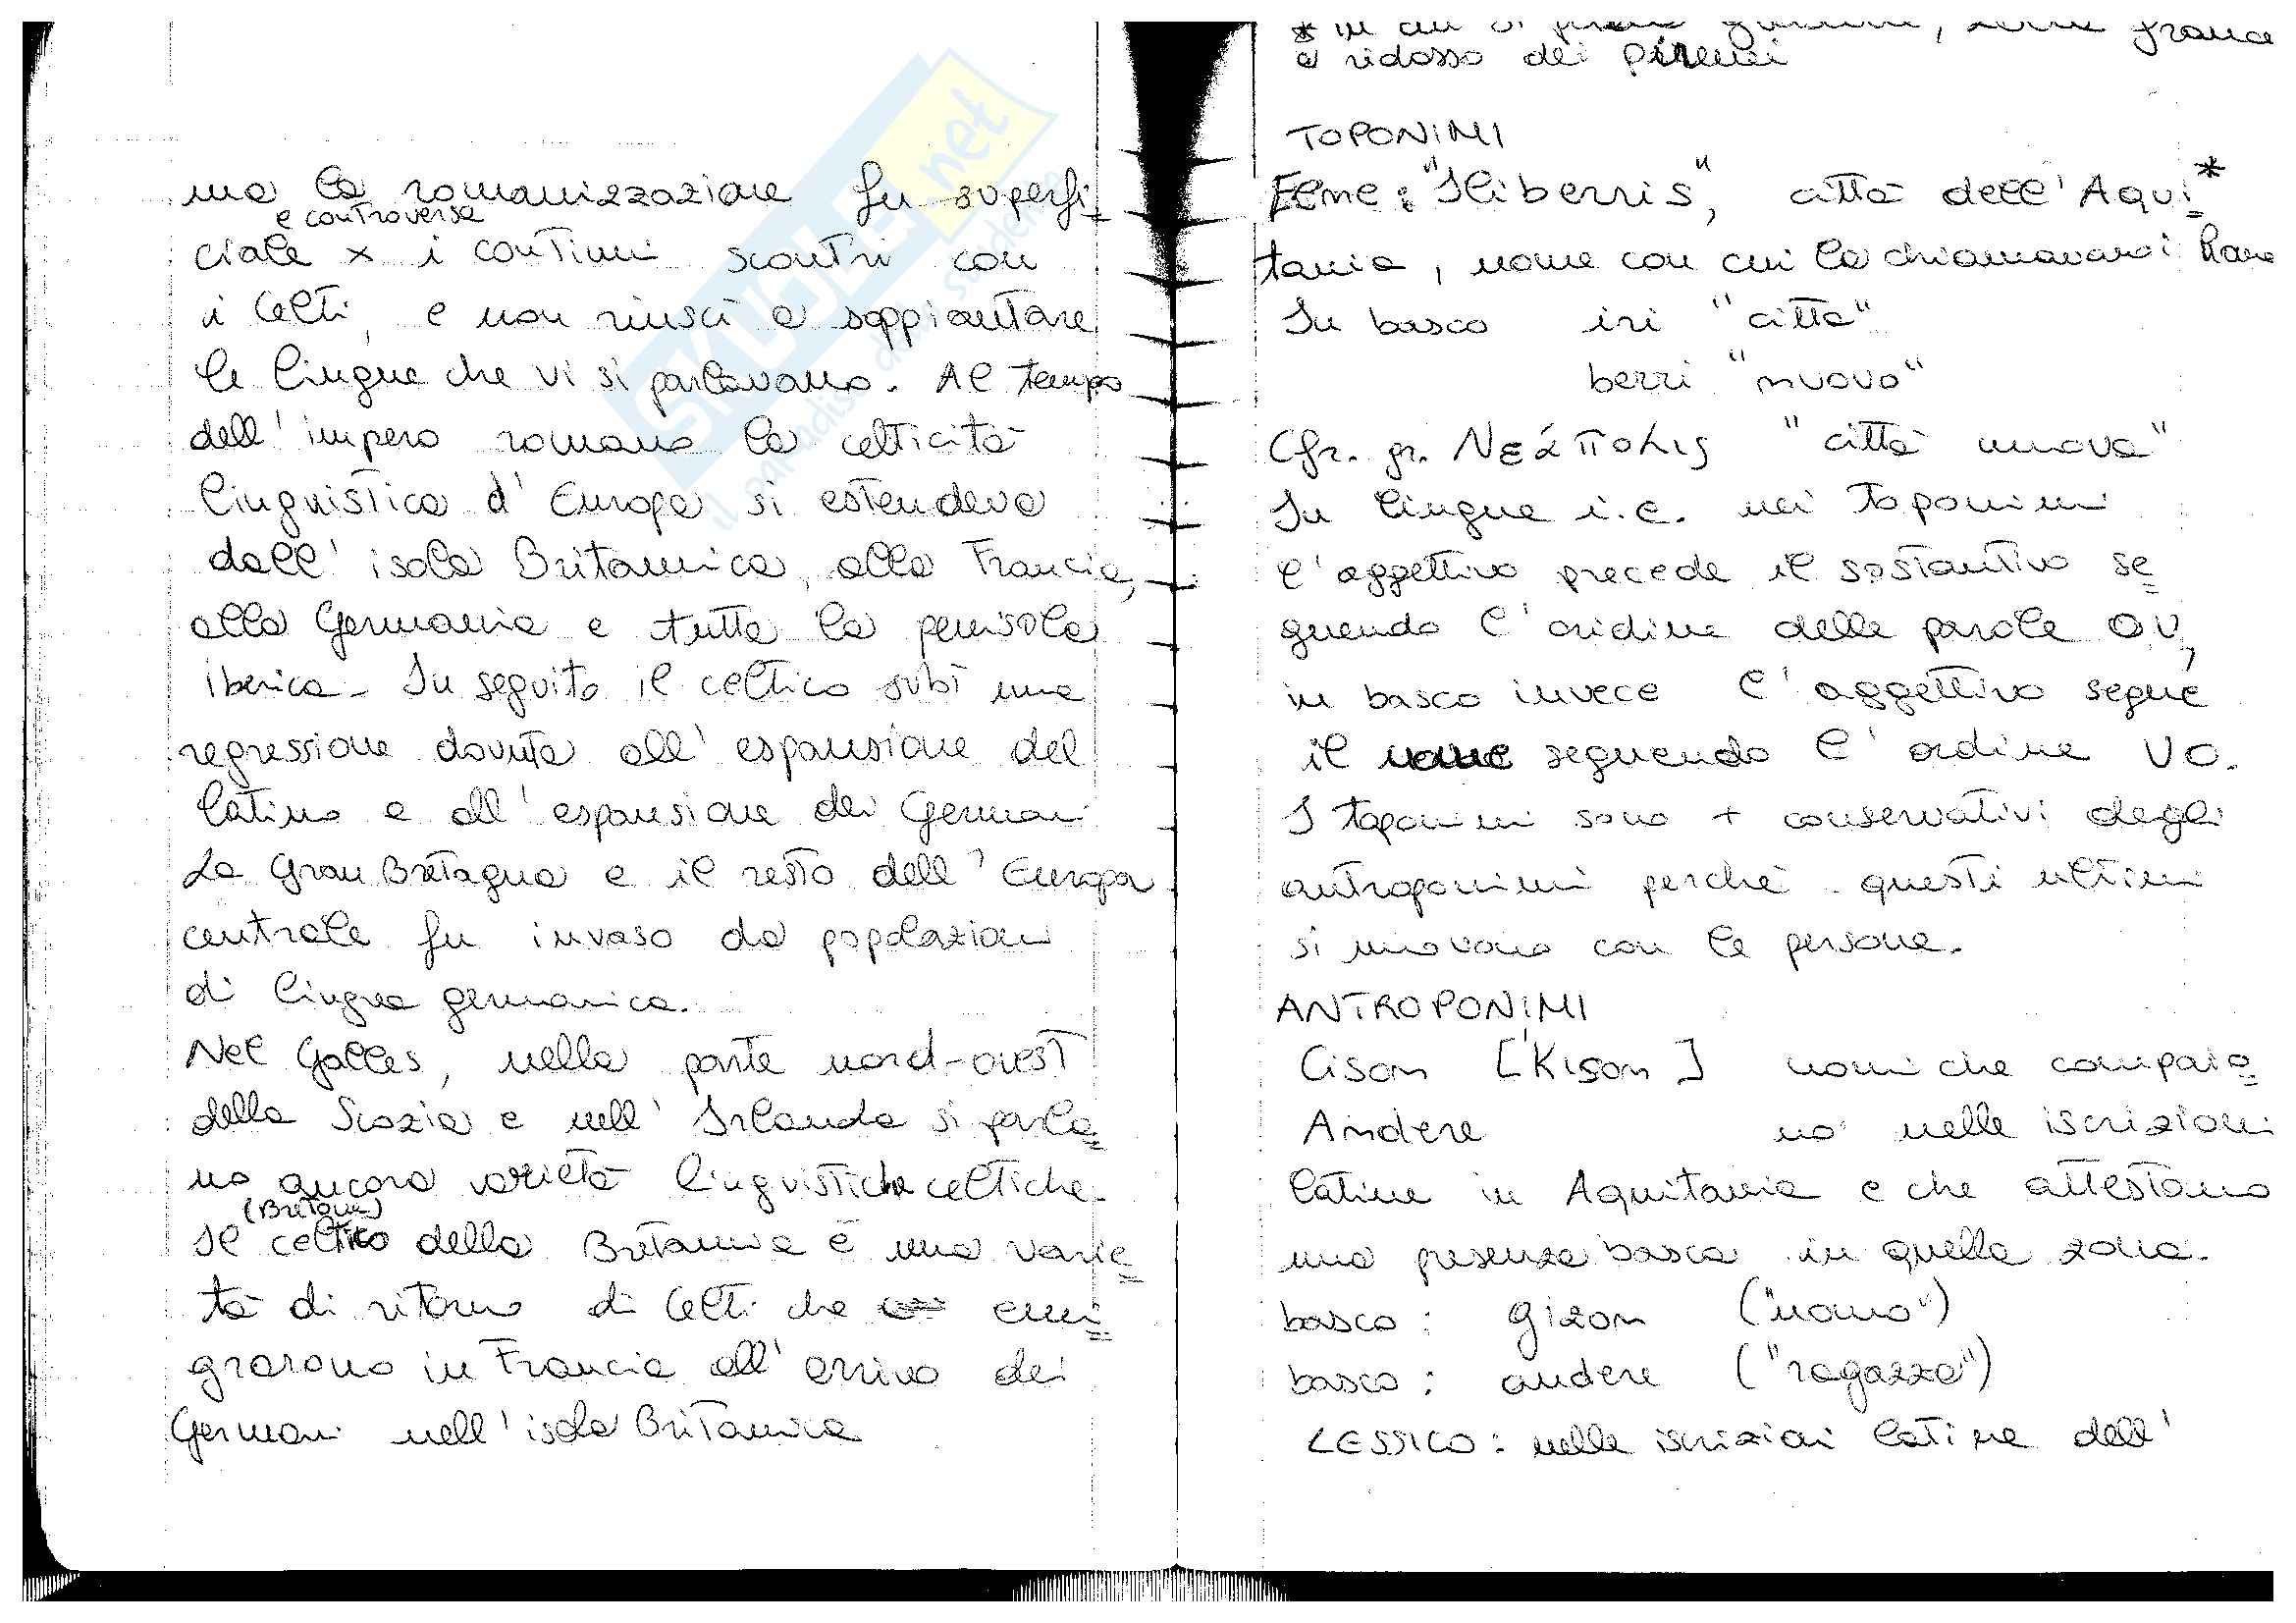 ma la romanizzazione fu superfi-
e controversa
ciale x i continui scontri con
i Celti, e non riuscì a soppiantare
le lingue che vi si parlavano. Al tempo
dell'impero romano la celticità
linguistica d'Europa si estendeva
dall'isola Britannica, alla Francia,
alla Germania e tutta la penisola
iberica. In seguito il celtico subì una
regressione dovuta all'espansione del
latino e all'espansione dei Germani
La Gran Bretagna e il resto dell'Europa
centrale fu invaso da popolazioni
di lingua germanica.
Nel Galles, nella parte nord-ovest
della Scozia e nell'Irlanda si parla=
no ancora varietà linguistiche celtiche.
(Bretone)
Il celtico della Britannia è una varie=
tà di ritorno di Celti che emi=
grarono in Francia all'arrivo dei
Germani nell'isola Britannica
* in cui si, zona
a ridosso dei Pirenei
TOPONIMI
Elne: "Iliberris", città dell'Aqui=*
tania, nome con cui la chiamavano i
In basco iri "città"
berri "nuovo"
Cfr. gr. Νεάπολις "città nuova"
In lingue i.e. nei toponimi
l'aggettivo precede il sostantivo se=
guendo l'ordine delle parole OV,
in basco invece l'aggettivo segue
il nome seguendo l'ordine VO.
I toponimi sono + conservativi degli
antroponimi perchè questi ultimi
si muovono con le persone.
ANTROPONIMI
Cison ['Kison] nomi che compaio=
Andere no nelle iscrizioni
latine in Aquitania e che attestano
una presenza basca in quella zona.
basco: gizon ("uomo")
basco: andere ("ragazza")
LESSICO: nelle iscrizioni latine dell'
SKUOLA.net
il paradiso dello studente